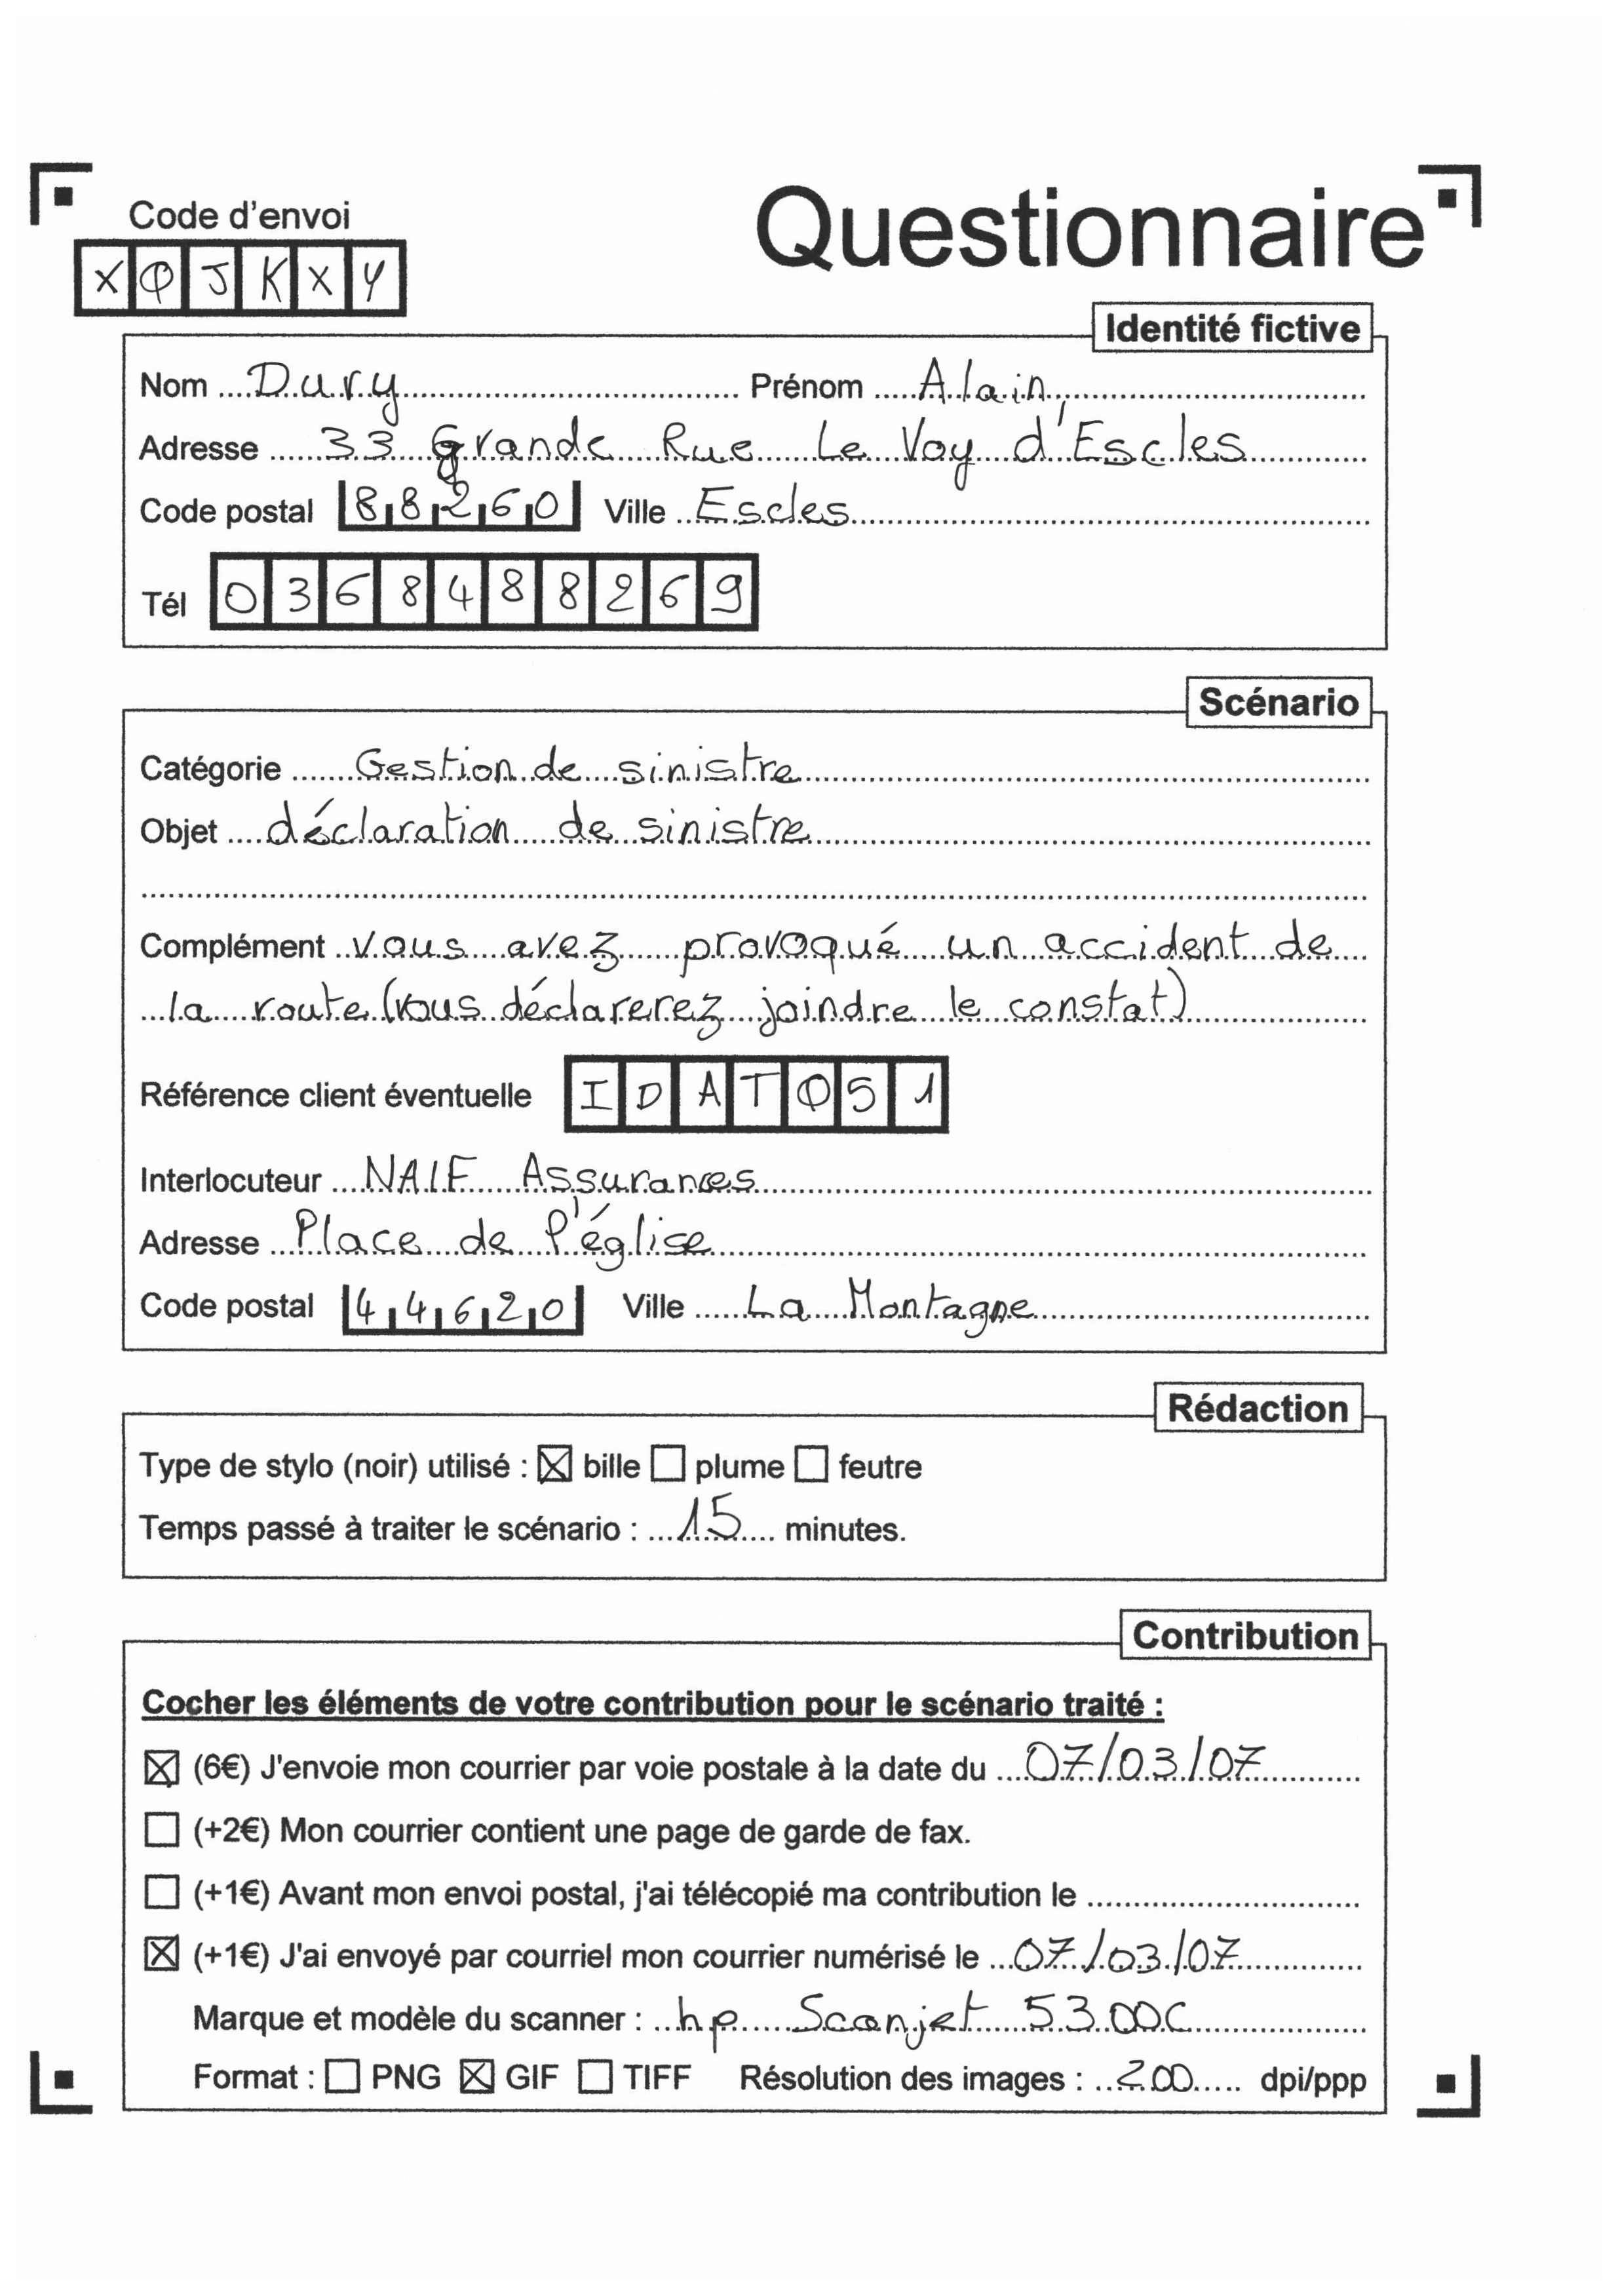 Questionnaire
Code d'envoi
XØJKXY
Identité fictive
Nom Dury Prénom Alain
Adresse 33 Grande Rue Le Voy d'Escles
Code postal 88260 Ville Escles
Tél 0368488269
Scénario
Catégorie Gestion de sinistre
Objet déclaration de sinistre
Complément vous avez provoqué un accident de
la route (vous déclarerez joindre le constat)
Référence client éventuelle IDATØ51
Interlocuteur NAIF Assurances
Adresse Place de l'église
Code postal 44620 Ville La Montagne
Rédaction
Type de stylo (noir) utilisé : ☒ bille ☐ plume ☐ feutre
Temps passé à traiter le scénario : 15 minutes.
Contribution
Cocher les éléments de votre contribution pour le scénario traité :
☒ (6€) J'envoie mon courrier par voie postale à la date du 07/03/07
☐ (+2€) Mon courrier contient une page de garde de fax.
☐ (+1€) Avant mon envoi postal, j'ai télécopié ma contribution le
☒ (+1€) J'ai envoyé par courriel mon courrier numérisé le 07/03/07
Marque et modèle du scanner : hp Scanjet 5300C
Format : ☐ PNG ☒ GIF ☐ TIFF Résolution des images : 200 dpi/ppp